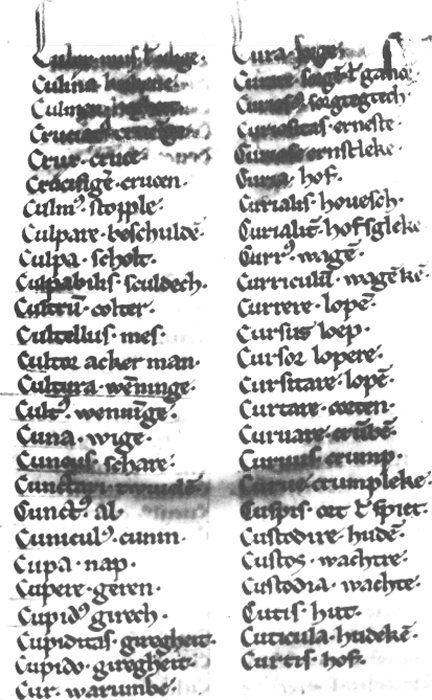 Culina
Culmen
Crux · cruce ·
Crucifigē · crucen ·
Culmꝰ · stopple ·
Culpare · beschuldē ·
Culpa · scholt ·
Culpabilis · sculdech ·
Cultrū · colter ·
Cultellus · mes ·
Cultor acker man ·
Cultura · wēninge ·
Cultꝰ · wenningē ·
Cuna · wige ·
Cuneus · schare ·
Cunctari ·
Cunctꝰ · al
Cuniculꝰ · cunin ·
Cupa · nap ·
Cupere · geren ·
Cupidꝰ girech ·
Cupiditas · giregheit ·
Cupido · giregheit ·
Cur · warumbe ·
Cura · sorge ·
Curiositas · erneste ·
ernstleke ·
Curia · hof ·
Curialis · houesch ·
Curialit̄ · hofsgleke
Currꝰ · wagē ·
Curriculū · wagēkē ·
Currere · lopē ·
Cursus loep ·
Cursor lopere ·
Cursitare · lopē ·
Curtare · corten ·
Curuare · crūbē ·
Curuus · crump ·
Curue · crumpleke ·
Cuspis · ort ł spiet ·
Custodire · hudē ·
Custos · wachtre ·
Custodia · wachte ·
Cutis · hut ·
Cuticula · hudekē ·
Curtis · hof ·